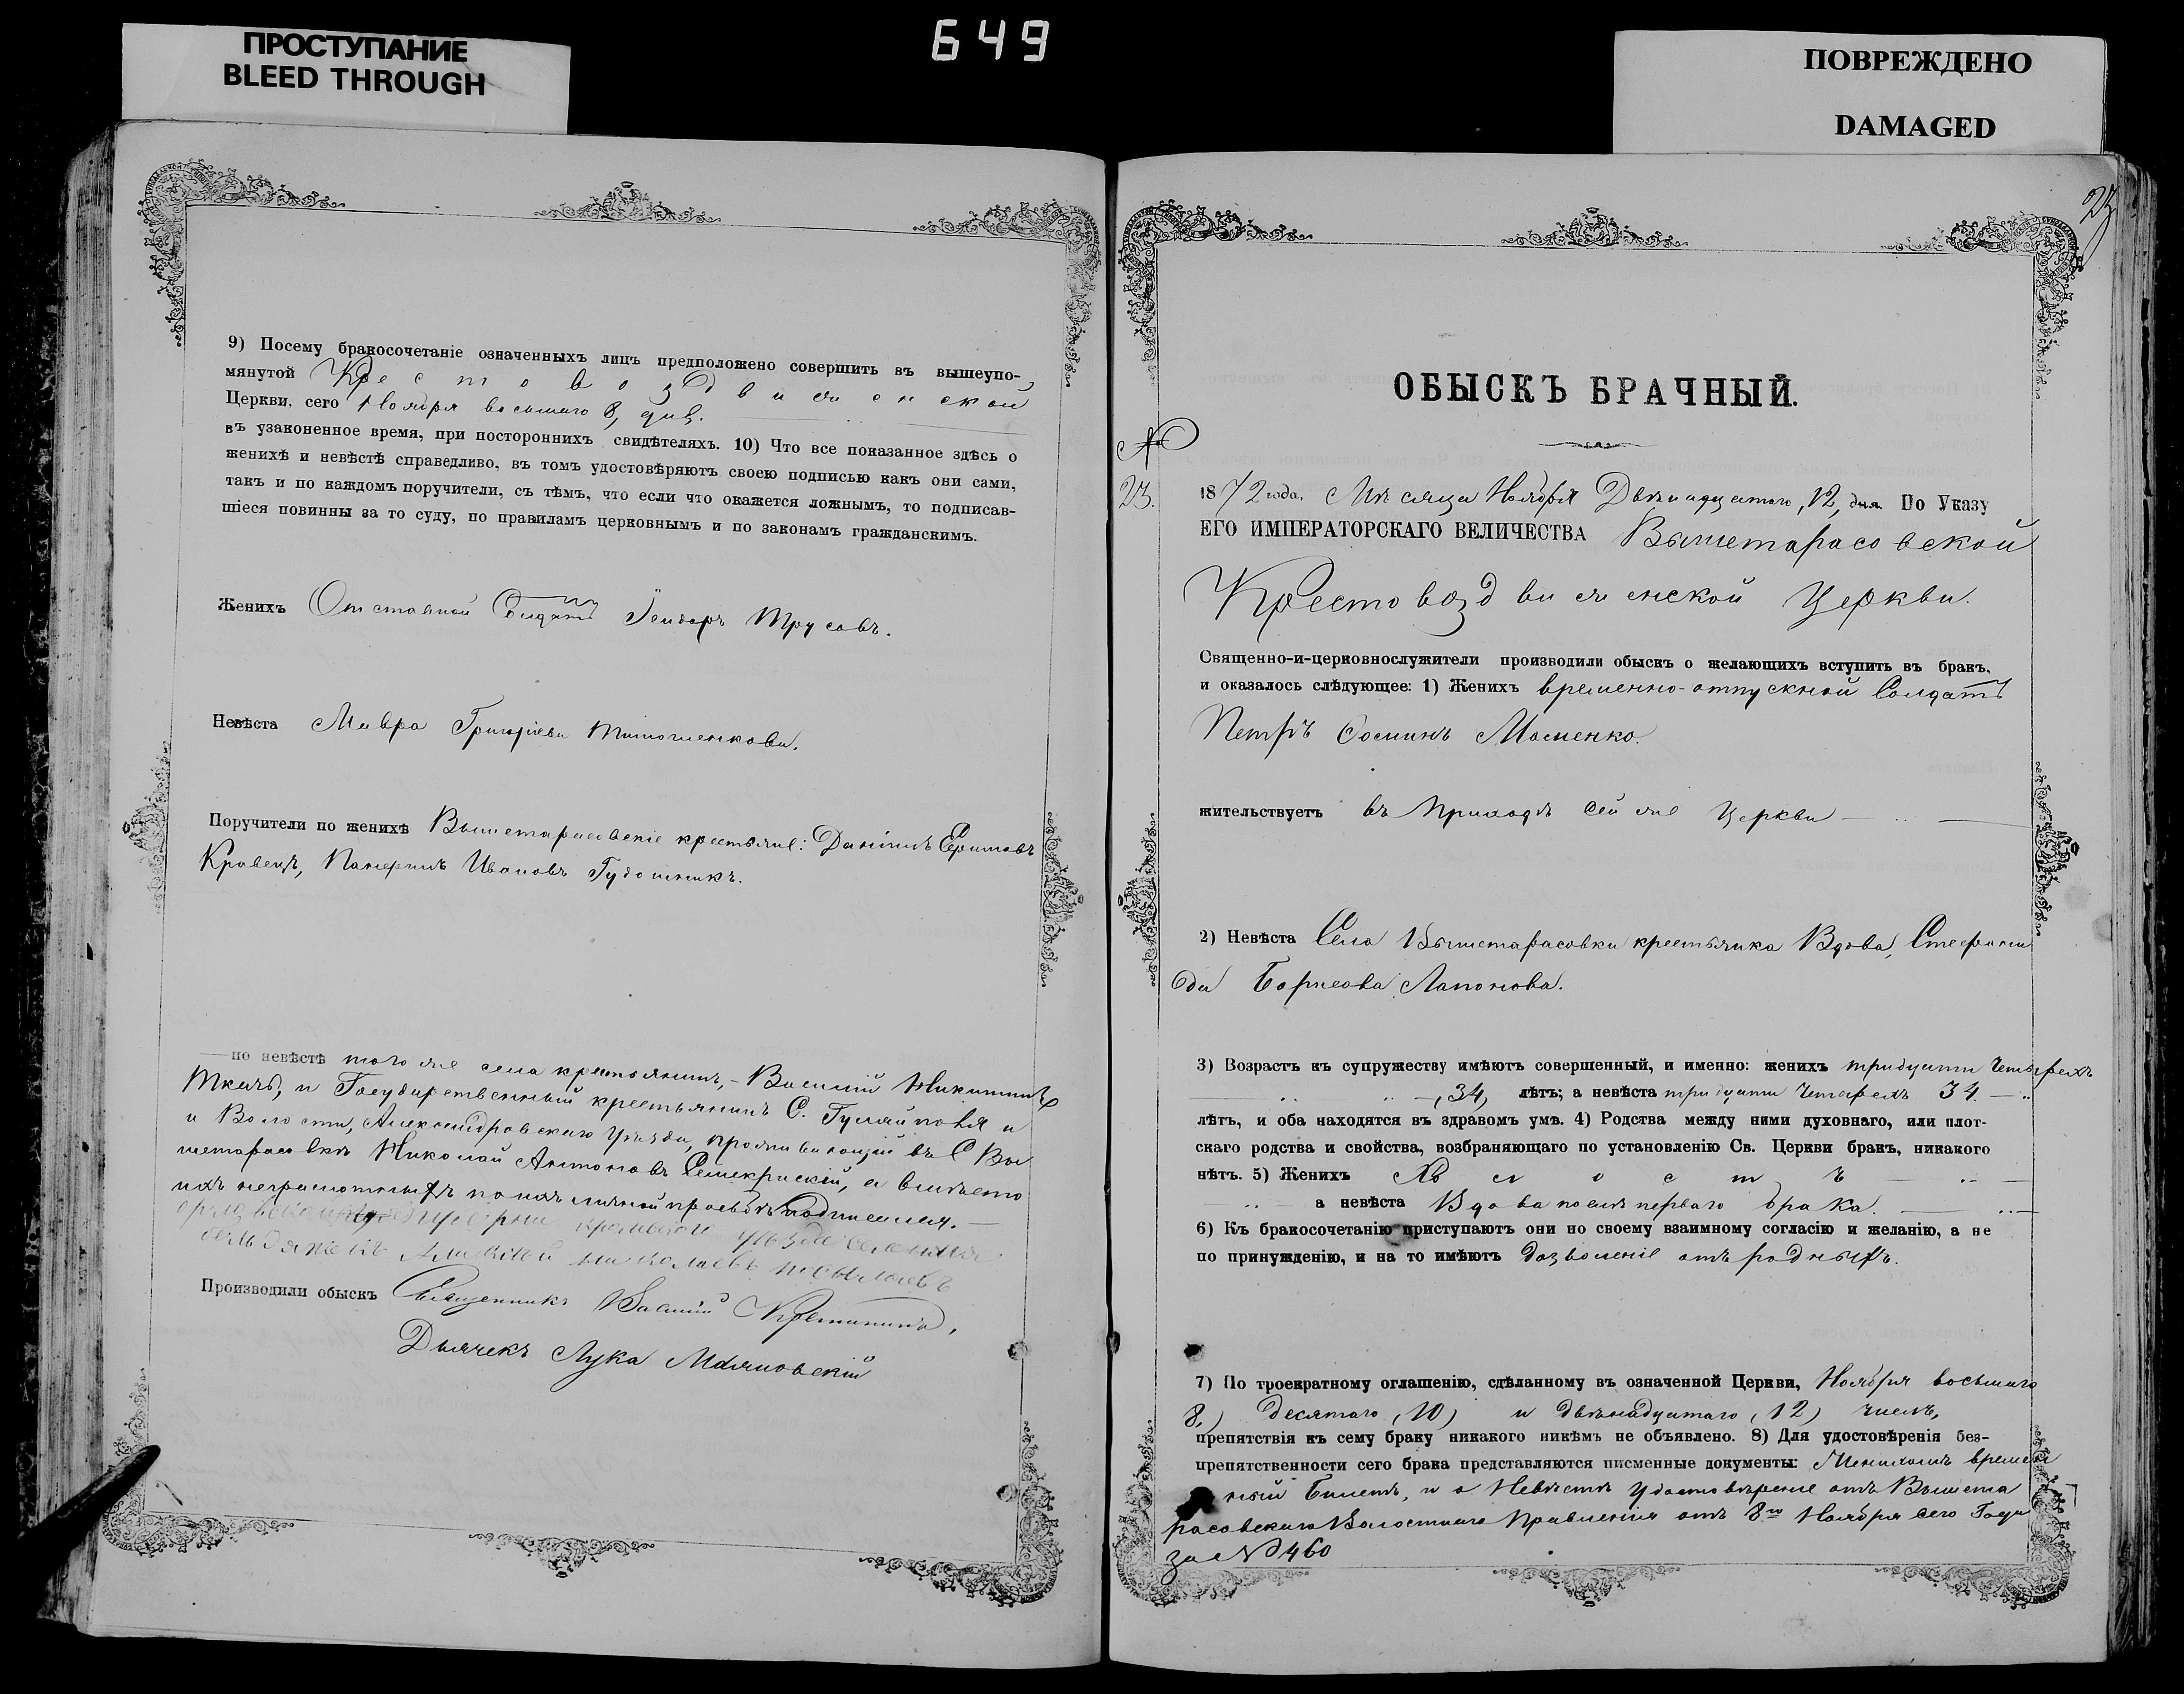 ПРОСТУПАНИЕ
BLEED THROUGH
649
ПОВРЕЖДЕНО
DAMAGED
9) Посему бракосочетаніе означенныхъ лицъ предположено совершить въ вышеупо-
мянутой Крестовоздвиженской
Церкви, сего Ноября восьмаго 8, дня.
въ узаконенное время, при постороннихъ свидѣтеляхъ. 10) Что все показанное здѣсь о
женихѣ и невѣстѣ справедливо, въ томъ удостовѣряютъ своею подписью какъ они сами,
такъ и по каждомъ поручители, съ тѣмъ, что если что окажется ложнымъ, то подписав-
шіеся повинны за то суду, по правиламъ церковнымъ и по законамъ гражданскимъ.
Женихъ Отставной Солдатъ Трусовъ.
Невѣста Мавра Григорiева Тимошенкова.
Поручители по женихѣ Вышетарасовскіе крестьяне: Даніилъ Ефимовъ
Кравецъ, Иановъ
по невѣстѣ того же села крестьянинъ, - Василій Никитинъ
Ткачъ, и Государственный крестьянинъ С. Гуляй поля и
и Волости, Александровскаго Уѣзда, проживающій въ С Вы
шетарасовкѣ Николай Антоновъ а вмѣсто
ихъ неграмотныхъ по ихъ личной прозьбѣ подписался.
Производили обыскъ Священникъ Василій
Дьячекъ Лука Маляновскій
23
ОБЫСКЪ БРАЧНЫЙ.
№
23.
1872 года, Мѣсяца Ноября Двѣнадцатаго, 12, дня. По Указу
ЕГО ИМПЕРАТОРСКАГО ВЕЛИЧЕСТВА Вышетарасовской
Крестовоздвиженской Церкви.
Священно-и-церковнослужители производили обыскъ о желающихъ вступить въ бракъ,
и оказалось слѣдующее: 1) Женихъ временно-отпускной Солдатъ
Петръ Фоминъ Мосленко.
жительствуетъ въ приходѣ сей же Церкви
2) Невѣста Села Вышетарасовки крестьянка Вдова, Стефани
да Борисова Лапонова.
3) Возрастъ къ супружеству имѣютъ совершенный, и именно: женихъ тридцати Четырехъ
,34, лѣтъ; а невѣста тридцати Четырехъ 34.
лѣтъ, и оба находятся въ здравомъ умѣ. 4) Родства между ними духовнаго, или плот-
скаго родства и свойства, возбраняющаго по установленію Св. Церкви бракъ, никакого
нѣтъ. 5) Женихъ Холостъ
а невѣста Вдова послѣ перваго брака.
6) Къ бракосочетанію приступаютъ они но своему взаимному согласію и желанію, а не
по принужденію, и на то имѣютъ дозволеніе отъ родныхъ.
7) По троекратному оглашенію, сдѣланному въ означенной Церкви, Ноября восьмаго
8,) десятаго, (10) и двѣнадцатаго, (12) числъ,
препятствія къ сему браку никакого никѣмъ не объявлено. 8) Для удостовѣренія без-
препятственности сего брака представляются писменные документы: Женихомъ времен
ный Билетъ, и о Невѣстѣ удостовѣреніе отъ Вышета
расовскаго Волостнаго Правленія отъ 8го Ноября сего Года
за № 460